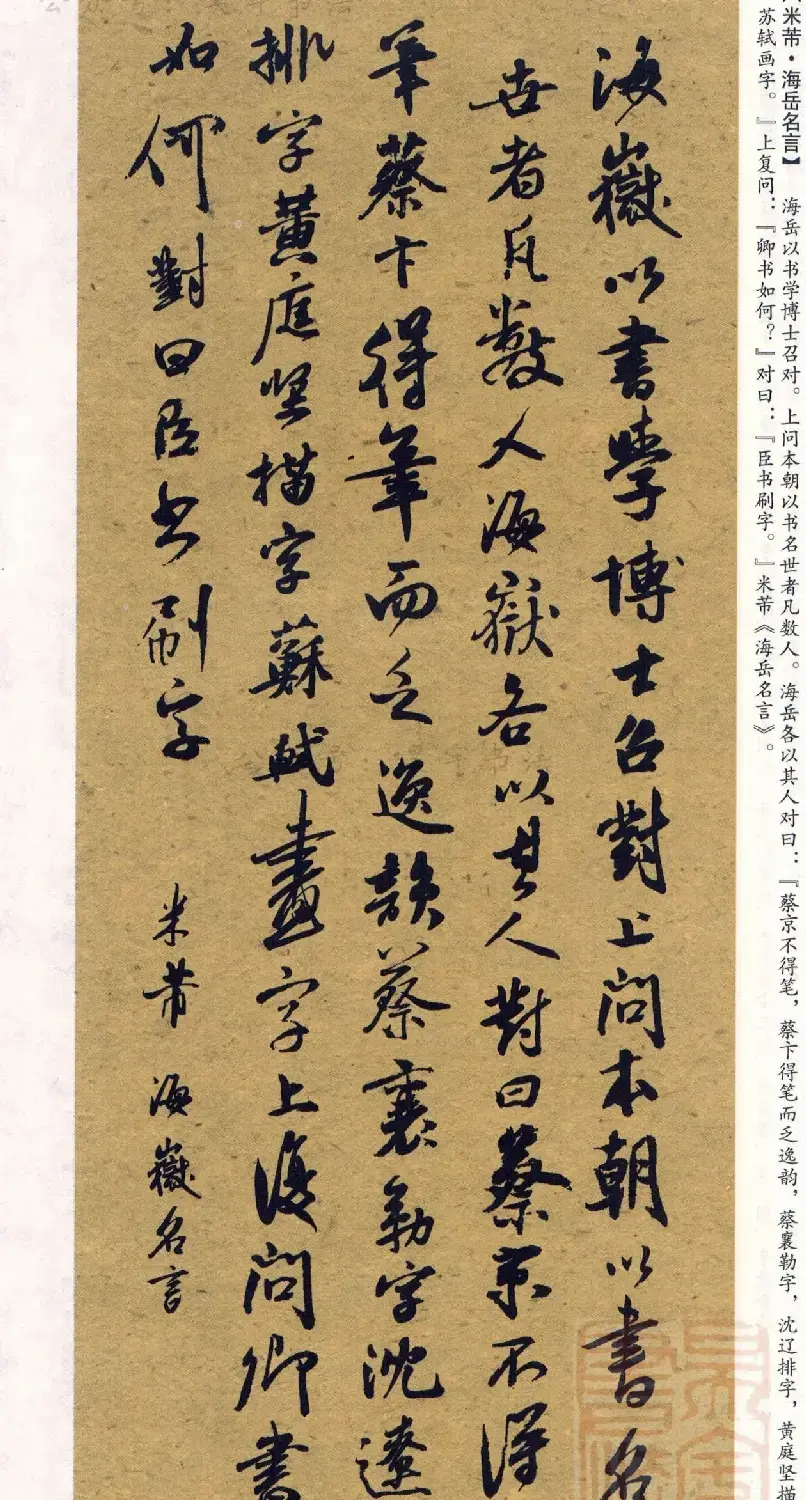 米芾·海岳名言】 海岳以书学博士召对。上问本朝以书名世者凡数人。海岳各以其人对曰：『蔡京不得笔，蔡卞得笔而乏逸韵，蔡襄勒字，沈辽排字，黄庭坚描
苏轼画字。』上复问：『卿书如何？』对曰：『臣书刷字。』米芾《海岳名言》。
海嶽以書學博士召對上問本朝以書名
世者凡數人海嶽各以其人對曰蔡京不得
筆蔡卞得筆而乏逸韻蔡襄勒字沈遼
排字黃庭坚描字蘇軾畫字上復問卿書
如何對曰臣书刷字
米芾 海嶽名言